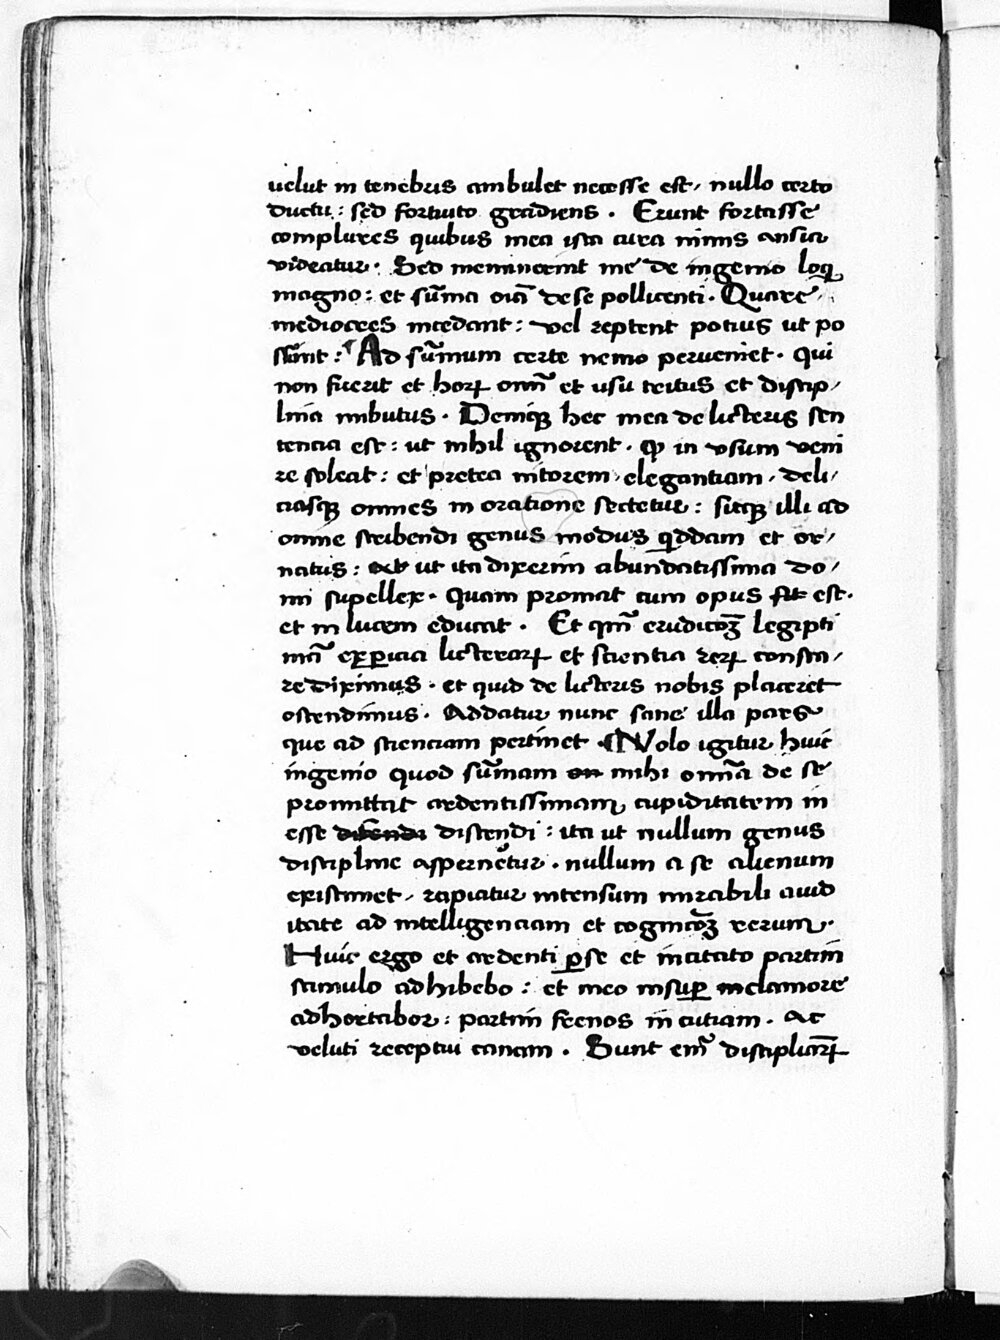 uelut in tenebris ambulet necesse est, nullo certo
ductu: sed fortuito gradiens. Erunt fortasse
complures quibus mea ista cura nimis ansia
videatur. Sed meminerint me de ingenio loqͥ
magno: et su̅ma oĩa de se pollicenti. Quare
mediocres incedant: vel reptent potius ut po
ssu̅nt: Ad su̅mum certe nemo perueniet. qui
non fuerit et horꝝ omniũ et usu teitus et discip/
lina imbutus. Deniqꝫ hec mea de licteris sen
tencia est: ut nihil ignorent. qͦ in vsum veni
re soleat: et pretea nitorem, elegantiam, deli/
ciasqꝫ omnes in oratione sectetur: sitqꝫ illi ad
omne scribendi genus modus qͥddam et or/
natus: ut ita dixerim abundatissima do/
mi supellex. Quam promat cum opus est.
et in lucem educat. Et qm̅ erudicoꝫ legipti
mã ex ꝑicia licterarꝝ et scientia rerꝝ consta/
re diximus. et quid de licteris nobis placeret
ostendimus. Addatur nunc sane illa pars
que ad scienciam pertinet. Nolo igitur huic
ingenio quod su̅mam mihi omniã de se
promittit ardentissimam cupiditatem in
esse discendi: ita ut nullum genus
discipline aspernetur. nullum a se alienum
existimet, rapiatur intensum mirabili auid
itate ad intelligenciam et cognicoꝫ rerum.
Huic ergo et ardenti ꝑse et incitato partim
stimulo adhibebo: et meo insuꝑ inclamore
adhortabor: partim frenos in cutiam. Ac
veluti receptui canam. Sunt em̅ disciplinarꝝ